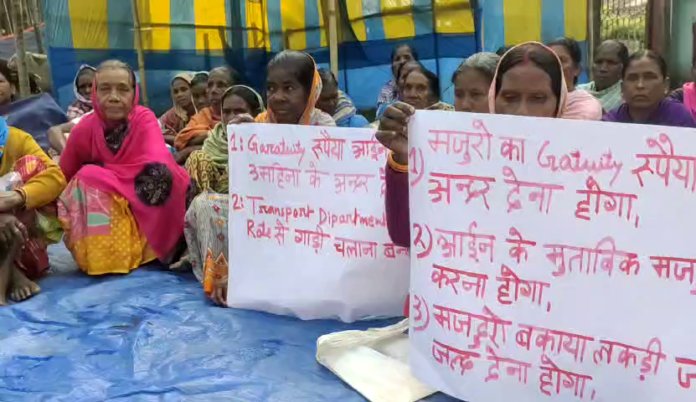 1: Garatuity रूपैया आईन
3 महिना के अन्दर दे
2: Transport Dipartment
Role से गाड़ी चलाना बन
मजुरो का Gratuity रूपैया
1) अन्दर देना होगा,
2) आईन के मुताबिक मजु
करना होगा,
3) मजदुरो बकाया लकड़ी ज
जल्द देना होगा,